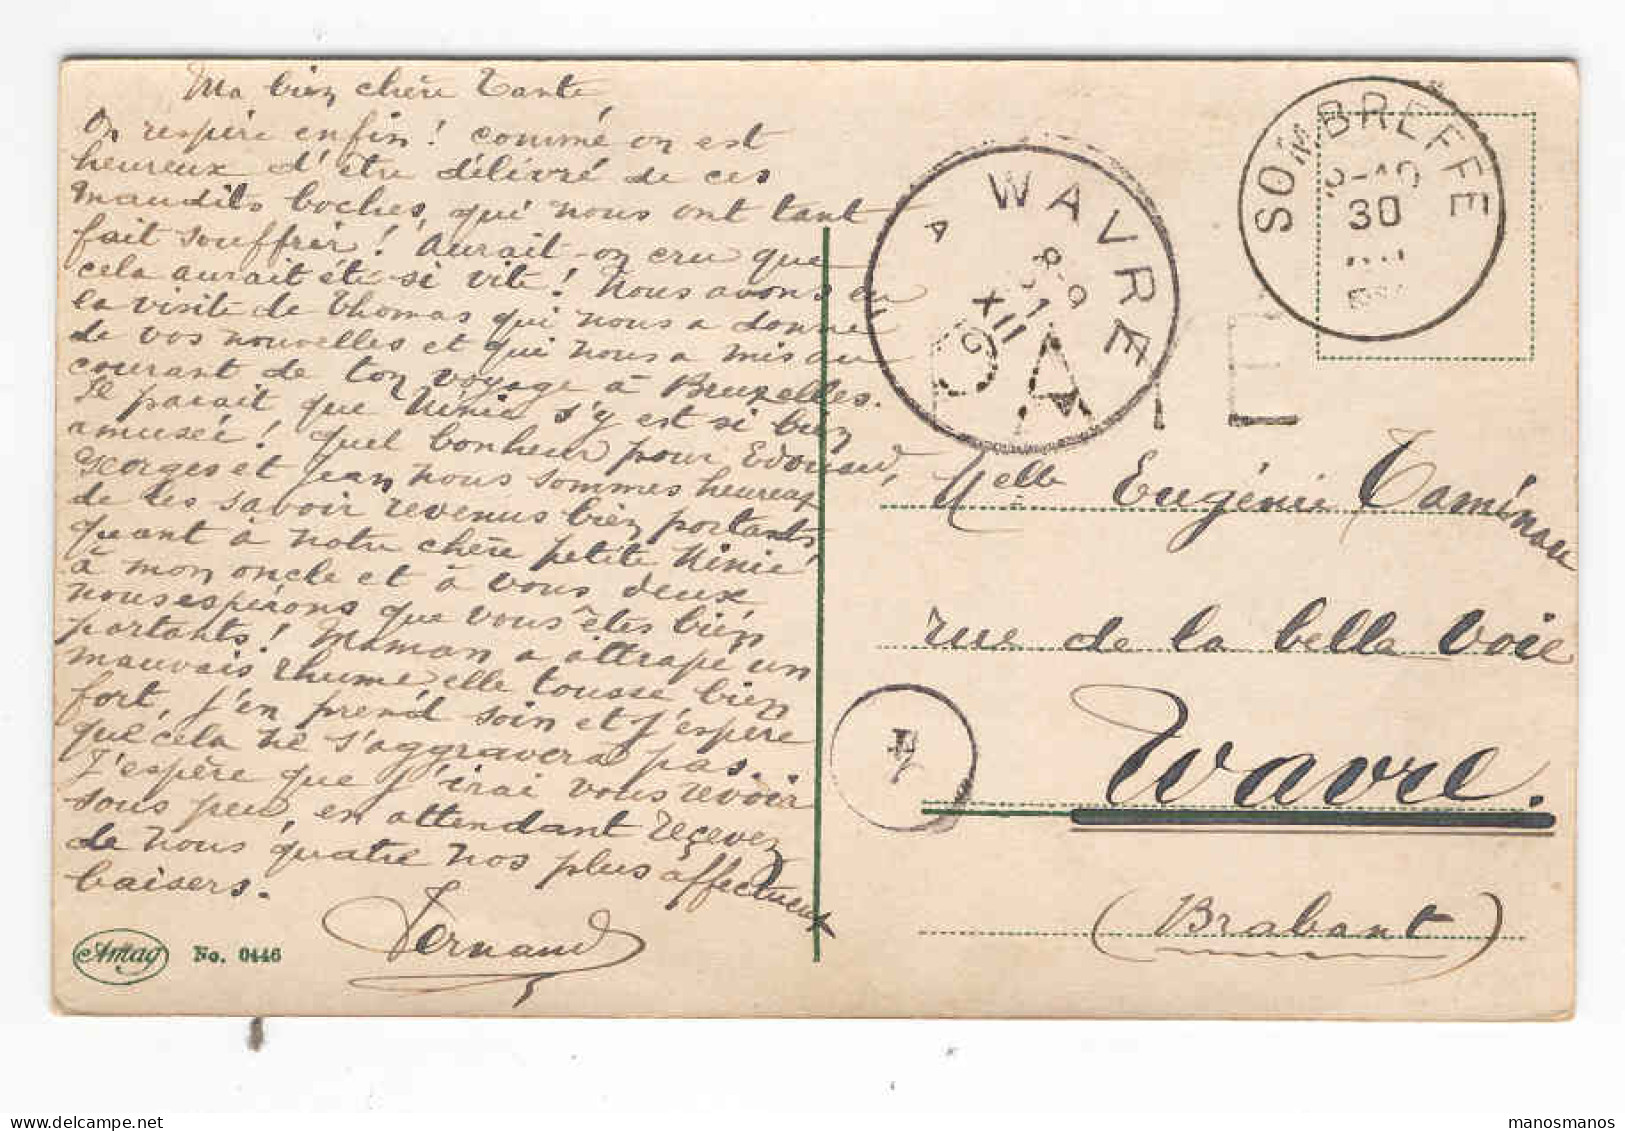 Ma bien chère Tante
On respire enfin! comme on est
heureux d'être délivré de ces
maudits boches, qui nous ont tant
fait souffrir! Aurait-on cru que
cela aurait été si vite! Nous avons eu
la visite de Thomas qui nous a donné
de vos nouvelles et qui nous a mis au
courant de ton voyage à Bruxelles.
Il parait que Ninie s'y est si bien
amusée! quel bonheur pour Edouard,
Georges et Jean nous sommes heureux
de les savoir revenus bien portants,
quant à notre chère petite Ninie
à mon oncle et à vous deux
nous espérons que vous êtes bien
portants! Maman a attrapé un
mauvais rhume elle tousse bien
fort, j'en prend soin et j'espère
que cela ne s'aggravera pas.
J'espère que j'irai vous revoir
sous peu, en attendant recevez
de nous quatre nos plus affectueux
baisers.
Fernand
Amag No. 0446
SOMBREFFE
30
WAVRE
A
8-9
XII
Melle Eugénie Taminiau
rue de la belle Voie
Wavre.
(Brabant)
manosmanos